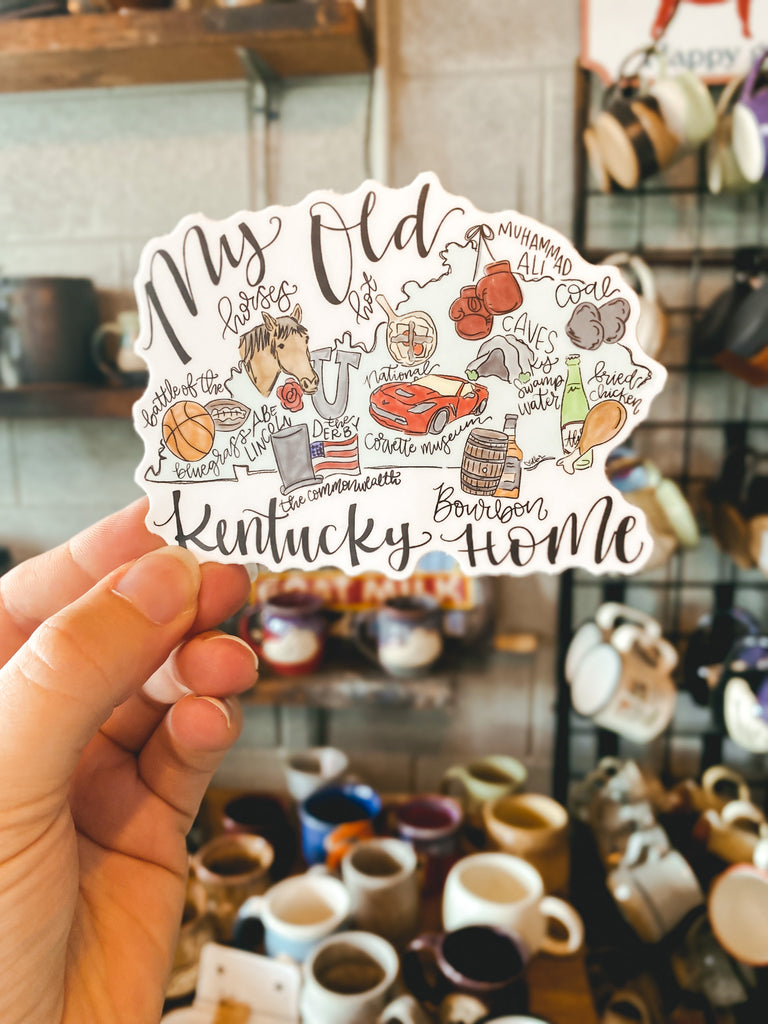 My Old
MUHAMMAD
ALI
horses
hot
coal
CAVES
battle of the
bluegrass
ABE
LINCOLN
the
DERBY
National
Corvette museum
Ky
swamp
water
fried
chicken
the commonwealth
Bourbon
Kentucky Home
Happy
GOAT MILK